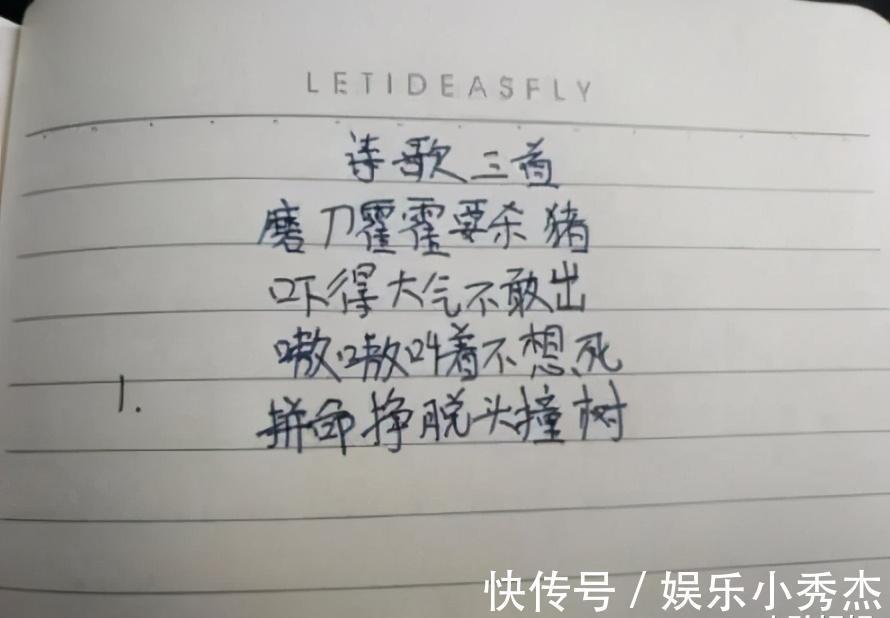 LETIDEASFLY
诗歌三首
磨刀霍霍要杀猪
吓得大气不敢出
嗷嗷叫着不想死
1.
拼命挣脱头撞树
快传号 / 娱乐小秀杰